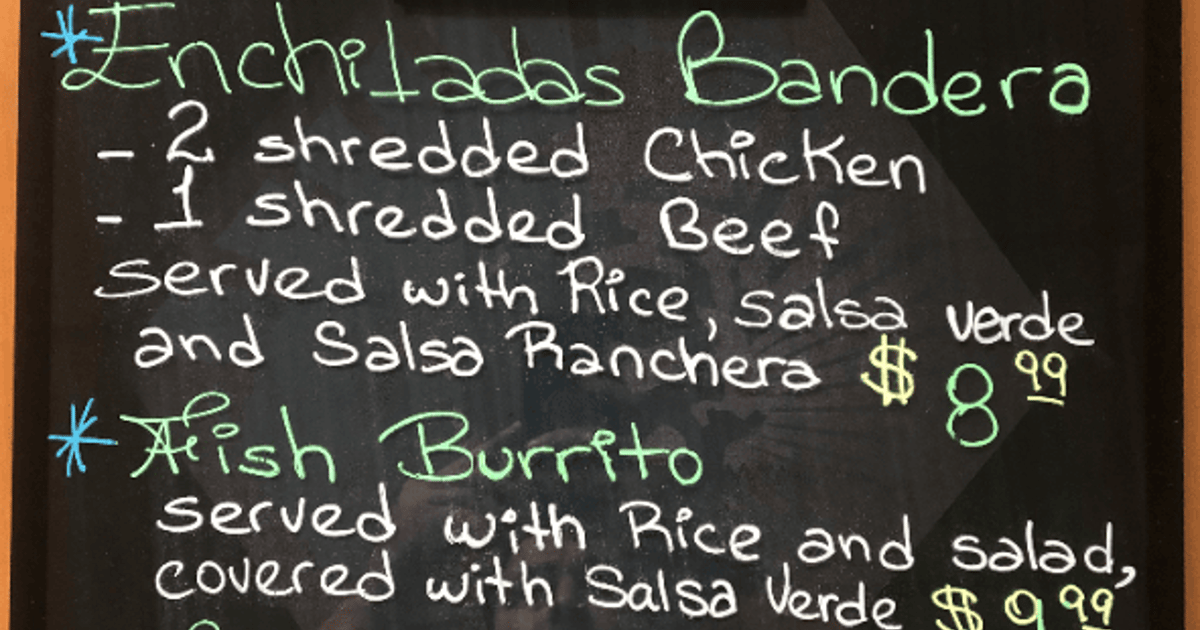 * Enchiladas Bandera
- 2 shredded Chicken
- 1 shredded Beef
served with Rice, salsa verde
and Salsa Ranchera $ 8 99
* Fish Burrito
served with Rice and salad,
covered with Salsa Verde $ 9 99